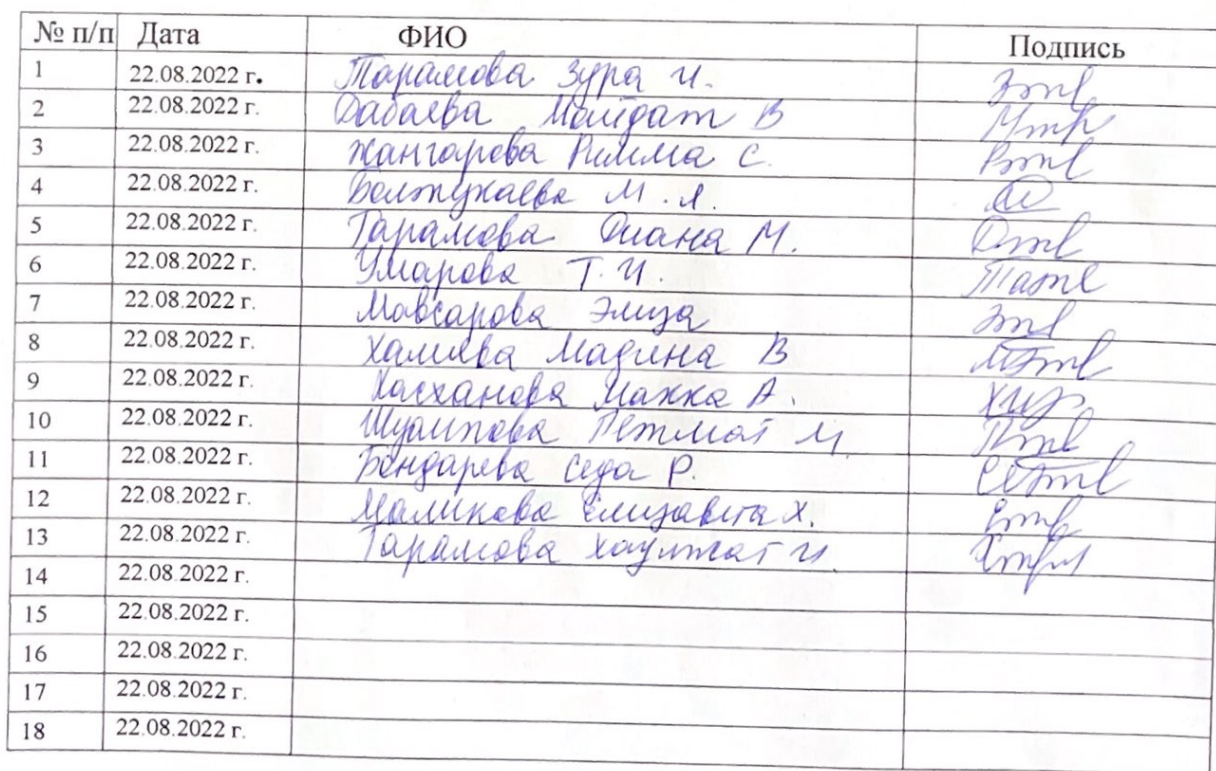 № п/п Дата ФИО Подпись
1 22.08.2022 г. Тарамова Зура И.
2 22.08.2022 г. Бабаева Майдат В
3 22.08.2022 г. Жангарова Римма С.
4 22.08.2022 г. М.
5 22.08.2022 г. Тарамова Диана М.
6 22.08.2022 г. Умарова Т.И.
7 22.08.2022 г. Мавсарова Элиза
8 22.08.2022 г. Мадина В
9 22.08.2022 г. Хасханова Макка А.
10 22.08.2022 г. Шуаипова Петмат М
11 22.08.2022 г. Бондарева Седа Р.
12 22.08.2022 г. Маликова Елизавета Х.
13 22.08.2022 г. Тарамова И.
14 22.08.2022 г.
15 22.08.2022 г.
16 22.08.2022 г.
17 22.08.2022 г.
18 22.08.2022 г.